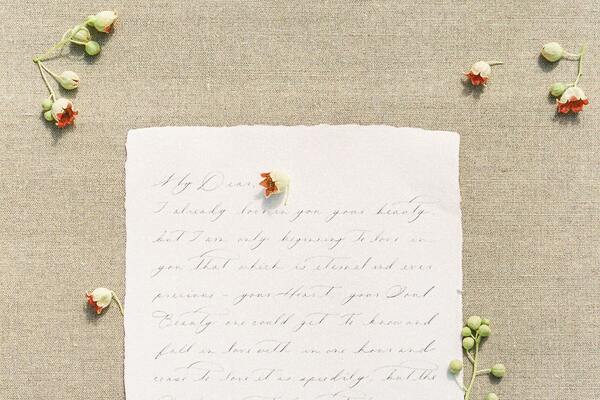 My Dear,
I already love in you your beauty
but I am only beginning to love in
you that which is eternal and ever
precious - your Heart, your Soul
Beauty one could get to know and
fall in love with in one hour and
cease to love it as speedily, but the